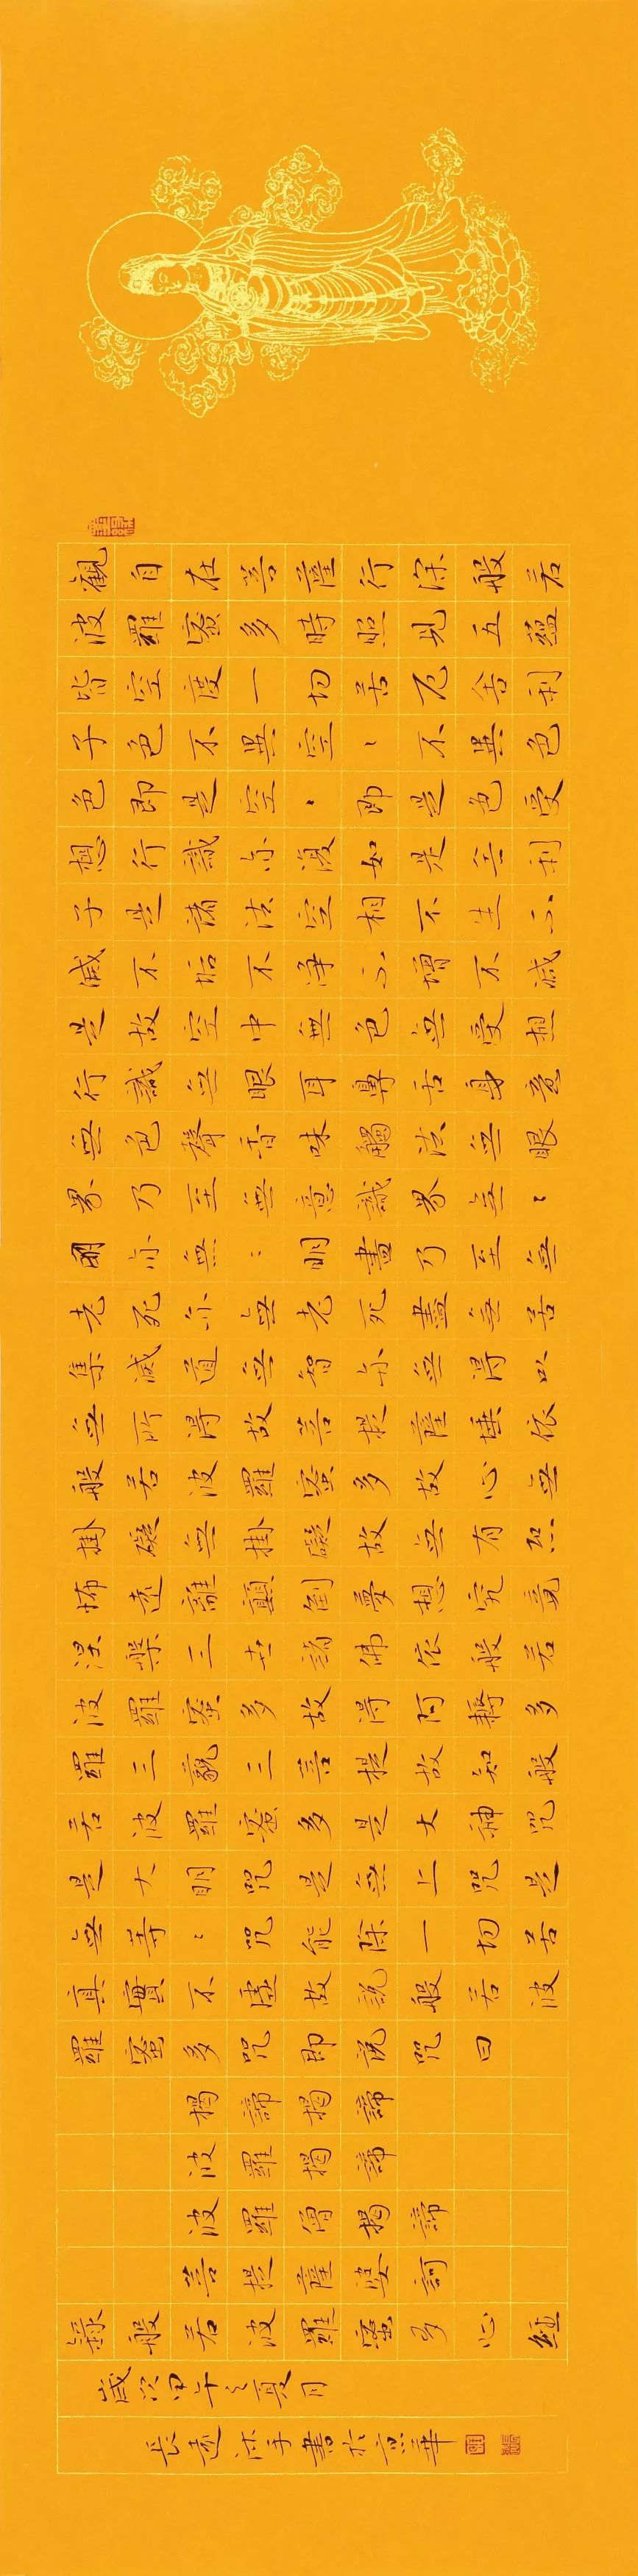 觀自在菩薩行深般若
波羅蜜多時照見五蘊
皆空度一切苦厄舍利
子色不異空〻不異色
色即是空〻即是色受
想行識亦復如是舍利
子是諸法空相不生不
滅不垢不淨不增不減
是故空中無色無受想
行識無眼耳鼻舌身意
無色聲香味觸法無眼
界乃至無意識界無〻
朙亦無〻明盡乃至無
老死亦無老死盡無苦
集滅道無智亦無得以
無所得故菩提薩埵依
般若波羅蜜多故心無
掛礙無掛礙故無有恐
怖遠離顛倒夢想究竟
涅槃三世諸佛依般若
波羅蜜多故得阿耨多
羅三藐三菩提故知般
若波羅蜜多是大神咒
是大明咒是無上咒是
無等〻咒能除一切苦
真實不虛故說般若波
羅蜜多咒即說咒曰
揭諦揭諦
波羅揭諦
波羅僧揭諦
菩提薩婆訶
錄般若波羅蜜多心經
歲次甲午之夏月
長遠沐手書於京華